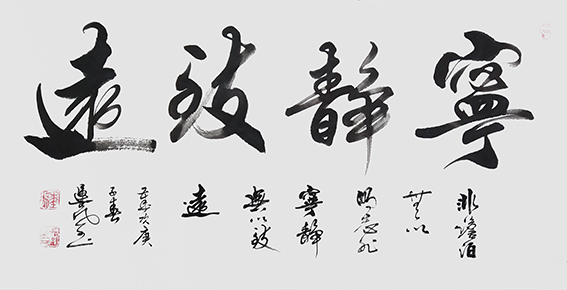 寧靜致遠
非澹泊
無以
明志非
寧靜
無以致
遠
歲次庚
子春